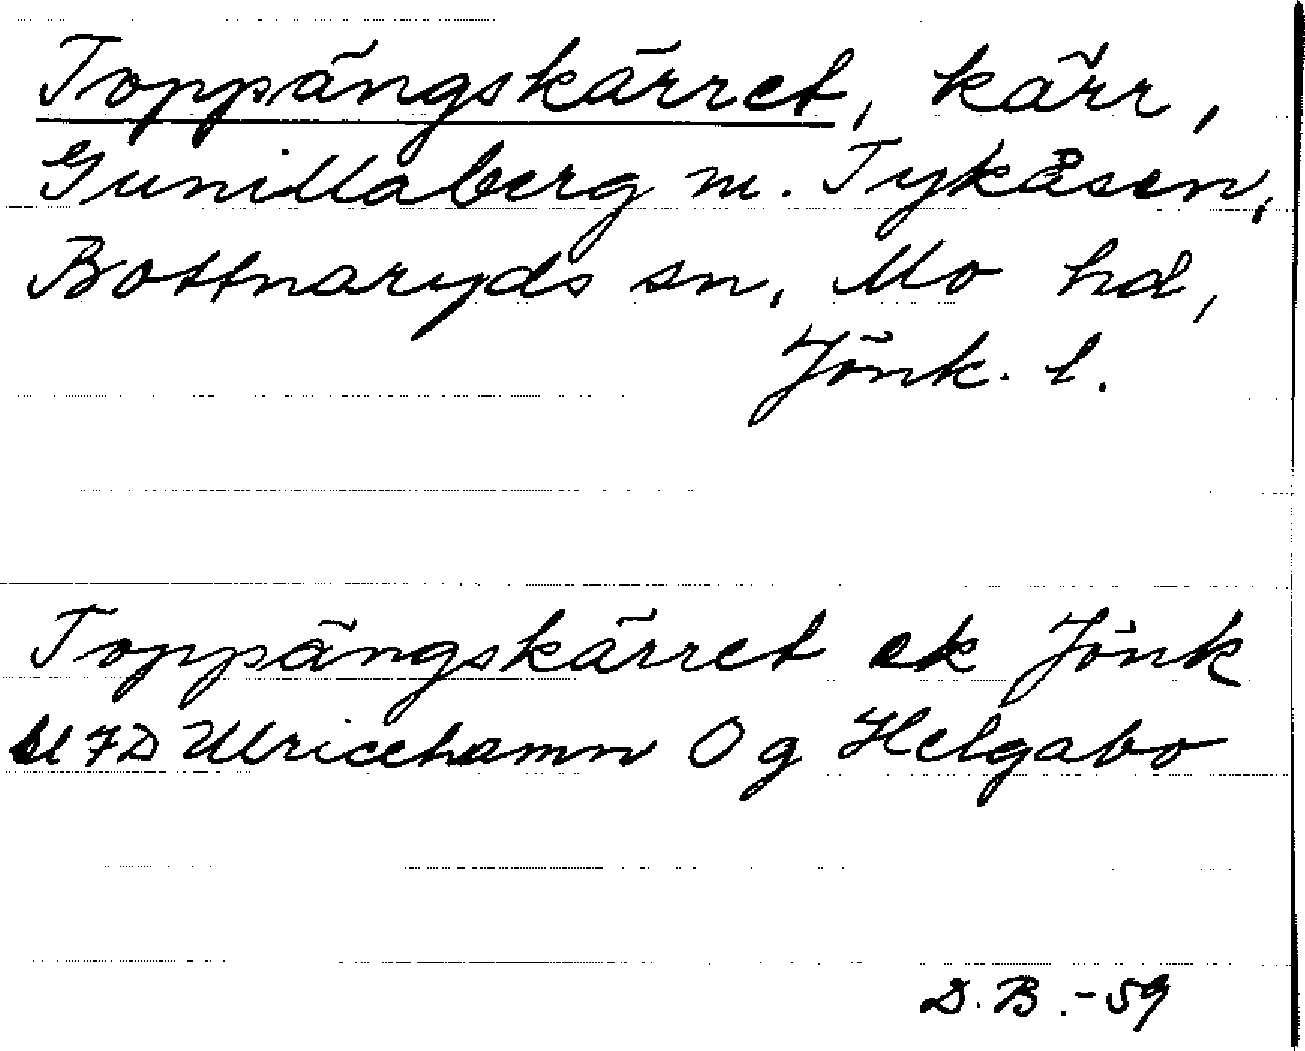 Toppängskärret, kärr,
Gunillaberg m. Tykåsen,
Bottnaryds sn, Mo hd,
Jönk. l.
Toppängskärret ek Jönk
M7D Ulricehamn Og Helgabo
D.B.-59